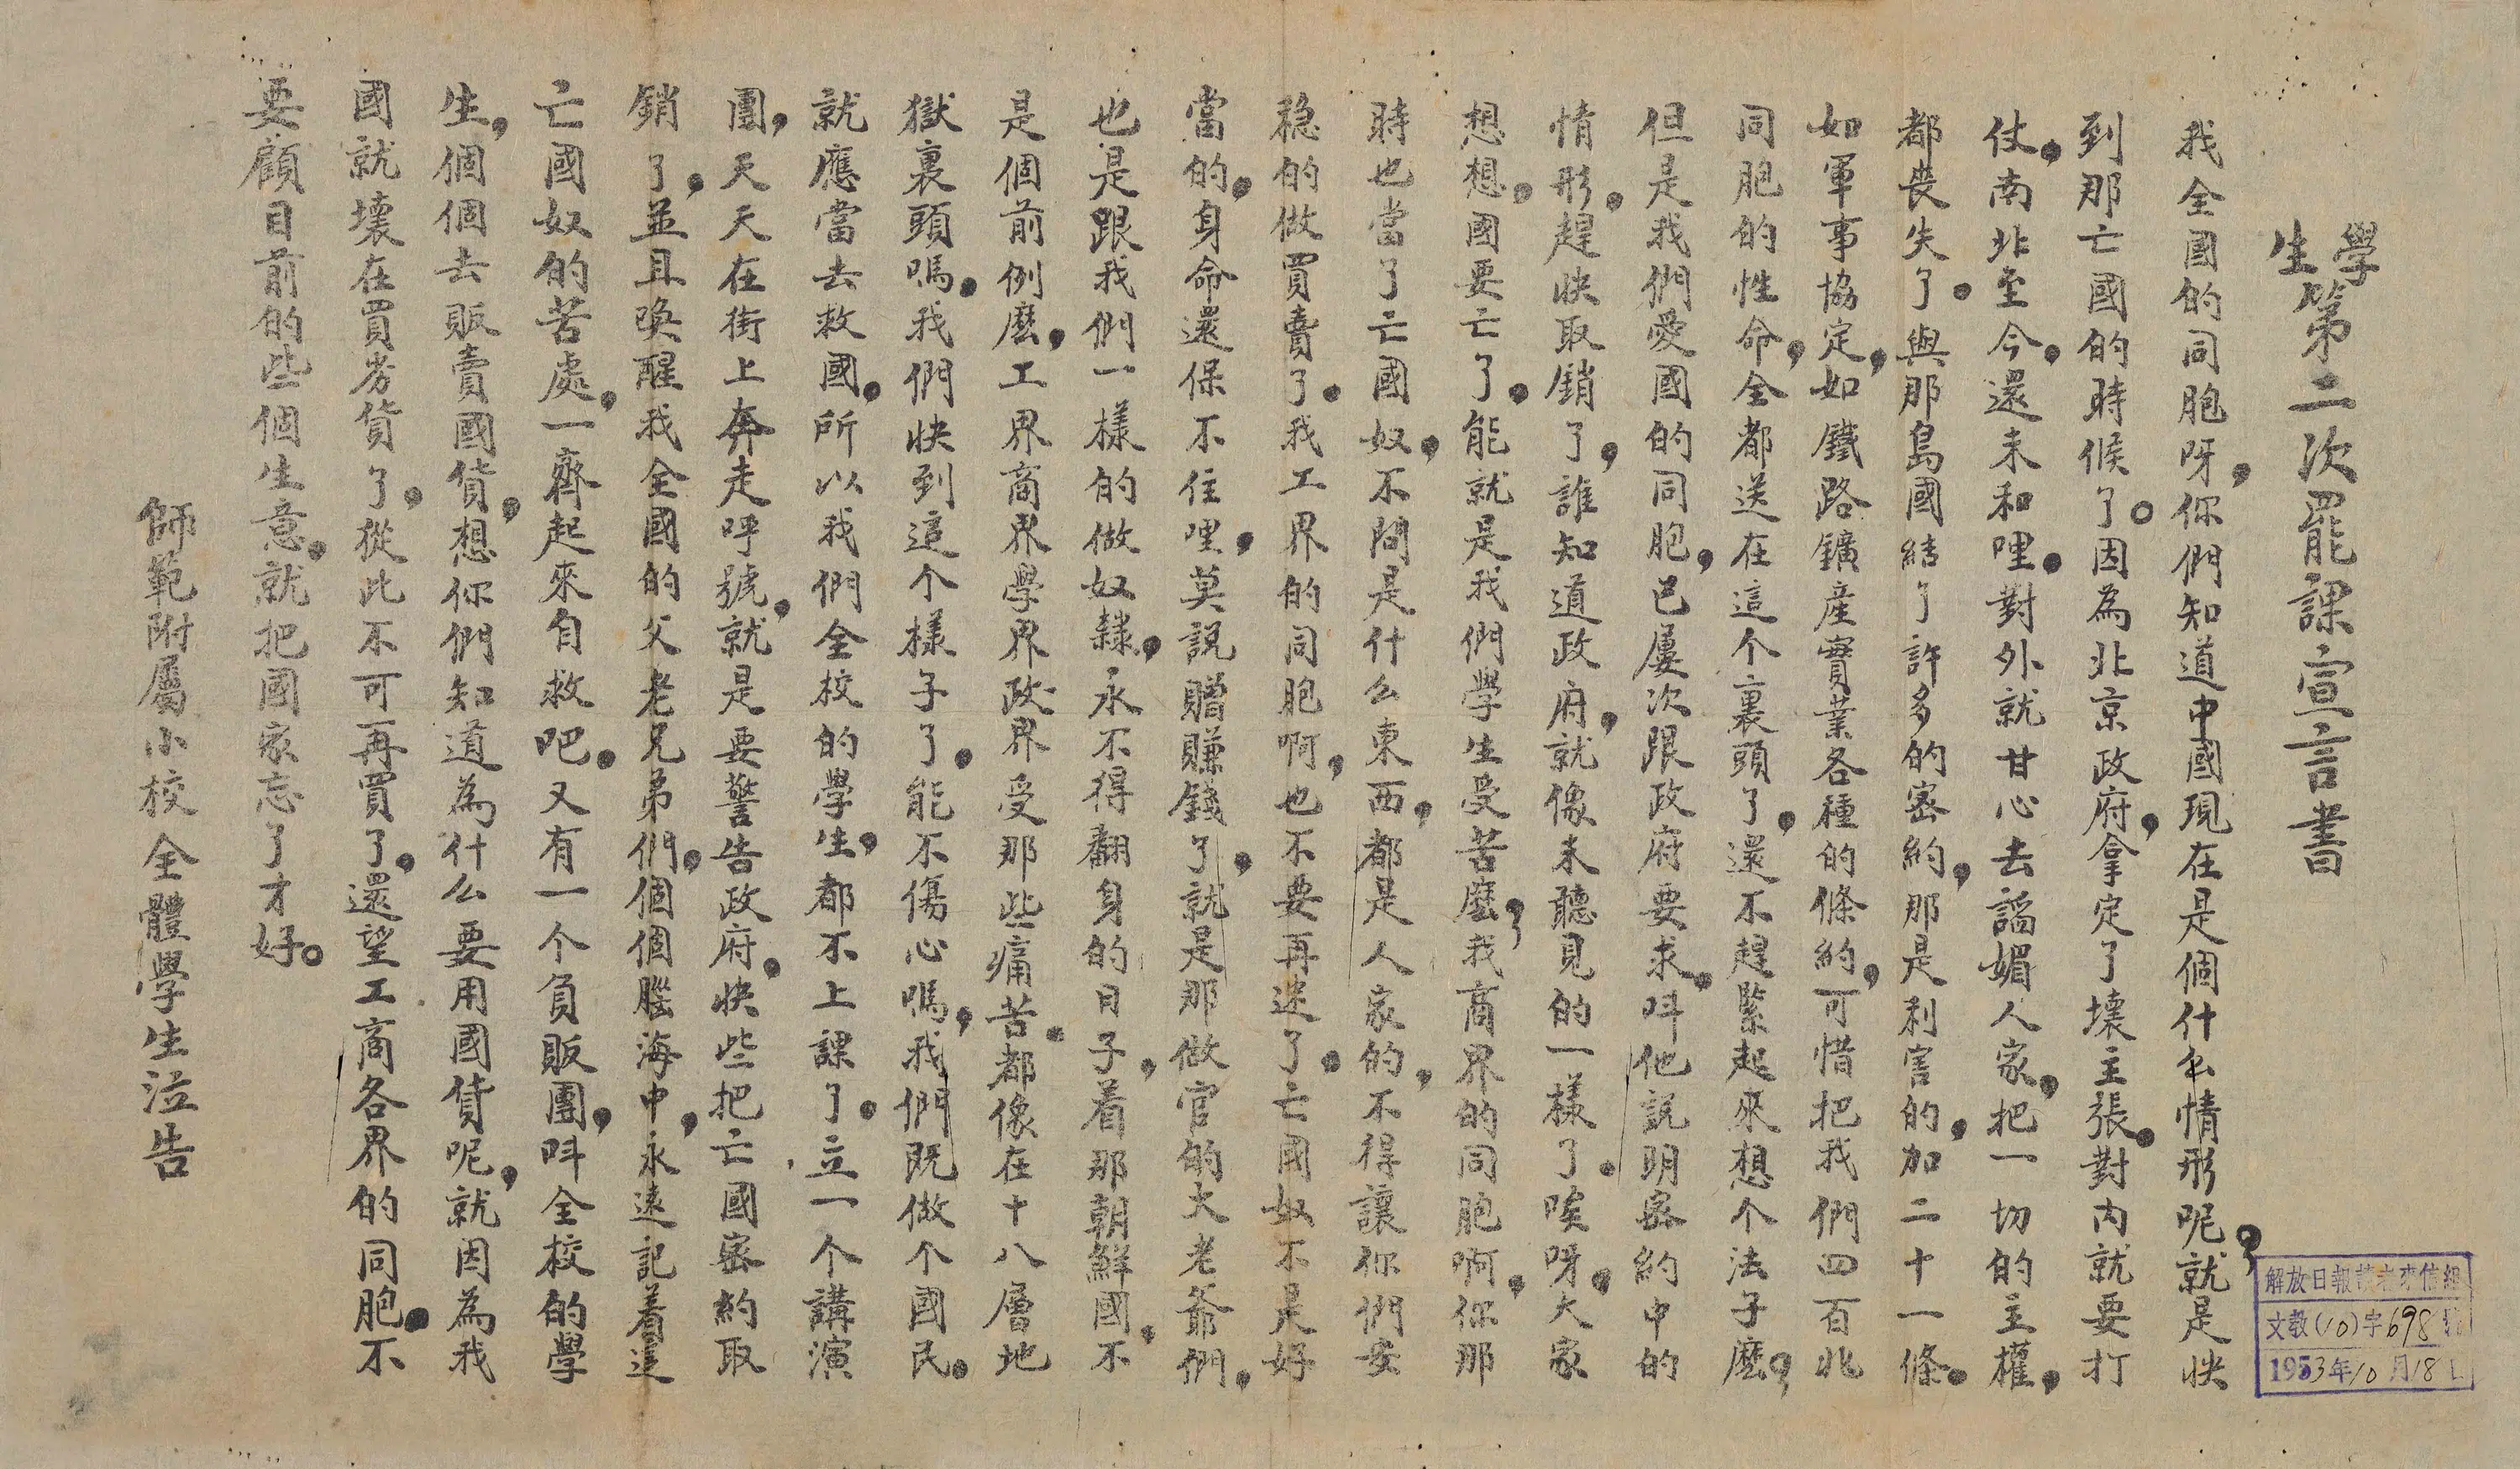 學生第二次罷課宣言書
我全國的同胞呀,你們知道中國現在是個什么情形呢?就是快
到那亡國的時候了。因為北京政府,拿定了壞主張。對内就要打
仗,南北至今,還未和哩。對外就甘心去謟媚人家,把一切的主權,
都丧失了。與那島國結了許多的密約,那是利害的,加二十一條。
如軍事協定,如鐵路鑛産實業各種的條約,可惜把我們四百兆
同胞的性命,全都送在這个裏頭了,還不趕緊起來想个法子麽?
但是我們愛國的同胞,已屢次跟政府要求,呌他説明密約中的
情形,趕快取銷了,誰知道政府,就像未聽見的一樣了。唉呀,大家
想想,國要亡了。能就是我們學生受苦麽?我商界的同胞啊,你那
時也當了亡國奴,不問是什么東西,都是人家的,不得讓你們安
穏的做買賣了。我工界的同胞啊,也不要再迷了。亡國奴不是好
當的,身命還保不住哩,莫説贈賺錢了,就是那做官的大老爺們,
也是跟我們一樣的做奴隸,永不得翻身的日子,着那朝鮮國,不
是個前例麽,工界商界學界政界受那些痛苦。都像在十八層地
獄裏頭嗎。我們快到這个樣子了。能不傷心嗎,我們既做个國民。
就應當去救國,所以我們全校的學生,都不上課了。立一个講演
團,天天在街上奔走呼號,就是要警告政府,快些把亡國密約取
銷了,並且喚醒我全國的父老兄弟們,個個腦海中,永遠記着這
亡國奴的苦處,一齊起來自救吧。又有一个負販團,呌全校的學
生,個個去販賣國貨,想你們知道為什么要用國貨呢,就因為我
國就壞在買劣貨了,從此不可再買了,還望工商各界的同胞,不
要顧目前的些個生意,就把國家忘了才好。
師範附屬小校全體學生泣告
解放日報讀者來信組
文教(10)字698號
1953年10月18日